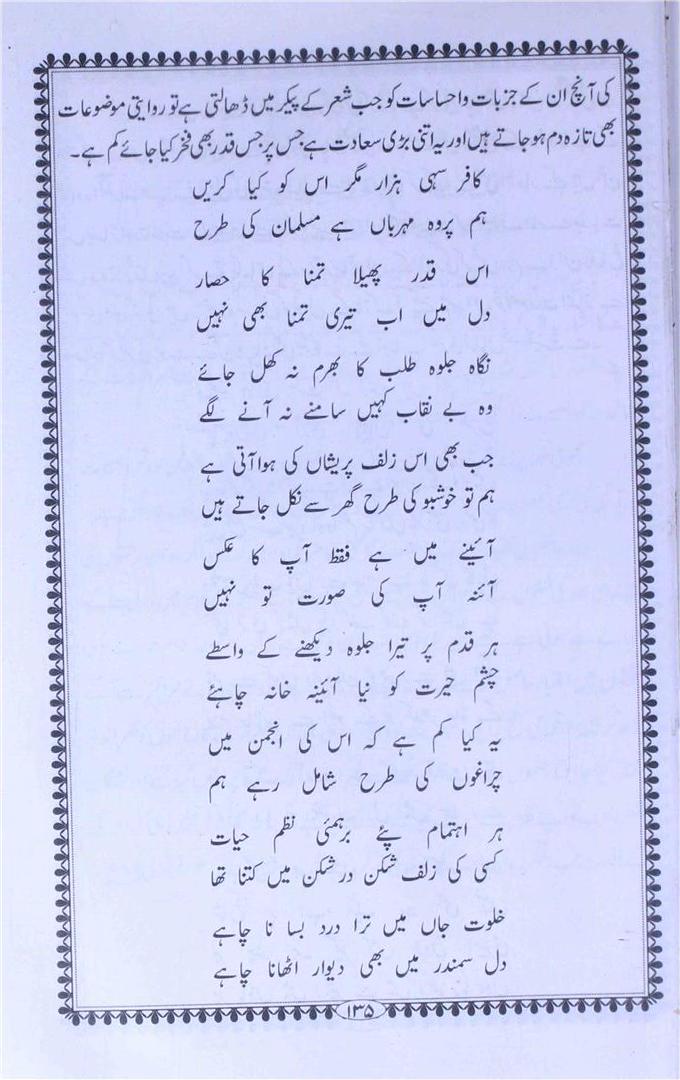 کی آنچ ان کے جزبات و احساسات کو جب شعر کے پیکر میں ڈھالتی ہے تو روایتی موضوعات
بھی تازہ دم ہو جاتے ہیں اور یہ اتنی بڑی سعادت ہے جس پر جس قدر بھی فخر کیا جائے کم ہے۔
کافر سہی ہزار مگر اس کو کیا کریں
ہم پروہ مہرباں ہے مسلمان کی طرح
اس قدر پھیلا تمنا کا حصار
دل میں اب تیری تمنا بھی نہیں
نگاہ جلوہ طلب کا بھرم نہ کھل جائے
وہ بے نقاب کہیں سامنے نہ آنے لگے
جب بھی اس زلف پریشاں کی ہوا آتی ہے
ہم تو خوشبو کی طرح گھر سے نکل جاتے ہیں
آئینے میں ہے فقط آپ کا عکس
آئنہ آپ کی صورت تو نہیں
ہر قدم پر تیرا جلوہ دیکھنے کے واسطے
چشم حیرت کو نیا آئینہ خانہ چاہئے
یہ کیا کم ہے کہ اس کی انجمن میں
چراغوں کی طرح شامل رہے ہم
ہر اہتمام پئے برہمئی نظم حیات
کسی کی زلف شکن در شکن میں کتنا تھا
خلوت جاں میں ترا درد بسا نا چاہے
دل سمندر میں بھی دیوار اٹھانا چاہے
۱۳۵